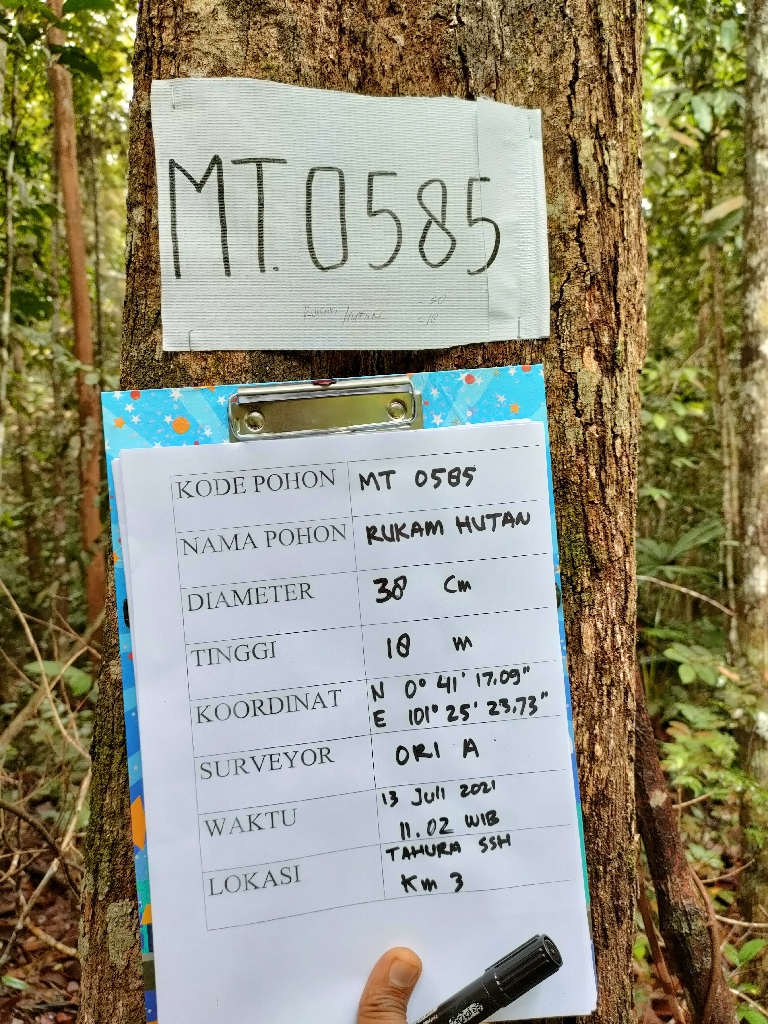 MT.0585
RUKAM HUTAN
KODE POHON MT 0585
NAMA POHON RUKAM HUTAN
DIAMETER 38 Cm
TINGGI 18 m
KOORDINAT N 0° 41' 17.09"
E 101° 25' 23.73"
SURVEYOR ORI A
WAKTU 13 Juli 2021
11.02 WIB
LOKASI TAHURA SSH
Km 3